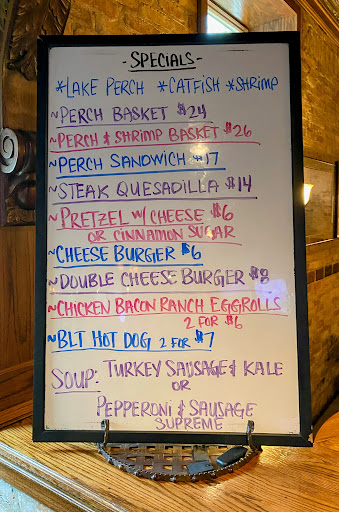 - SPECIALS -
*LAKE PERCH *CATFISH *SHRIMP
~PERCH BASKET $24
~PERCH & SHRIMP BASKET $26
~PERCH SANDWICH $17
~STEAK QUESADILLA $14
~PRETZEL W/ CHEESE $6
OR CINNAMON SUGAR
~CHEESE BURGIER $6
~DOUBLE CHEESE BURGER $8
~CHICKEN BACON RANCH EGGROLLS
2 FOR $6
~BLT HOT DOG 2 FOR $7
SOUP: TURKEY SAUSAGE & KALE
OR
PEPPERONI & SAUSAGE
SUPREME